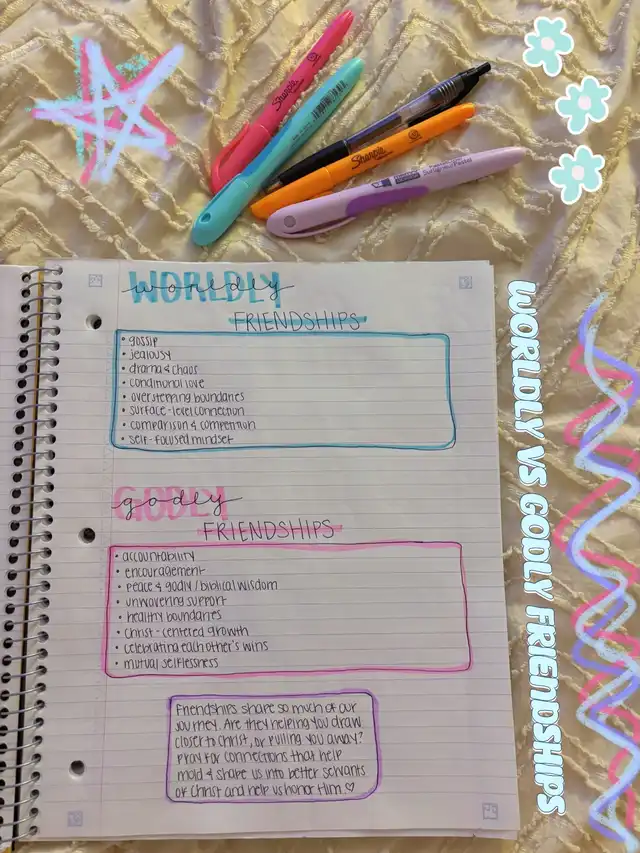 Sharpie
Sharpie
WORLDLY
worldly
FRIENDSHIPS
• gossip
• jealousy
• drama & chaos
• conditional love
• overstepping boundaries
• surface-level connection
• comparison & competition
• self-focused mindset
GODLY
godly
FRIENDSHIPS
• accountability
• encouragement
• peace & godly/biblical wisdom
• unwavering support
• healthy boundaries
• Christ-centered growth
• celebrating each other's wins
• mutual selflessness
Friendships shape so much of our
journey. Are they helping you draw
closer to Christ, or pulling you away?
Pray for connections that help
mold & shape us into better servants
of Christ and help us honor Him ♡
WORLDLY VS GODLY FRIENDSHIPS